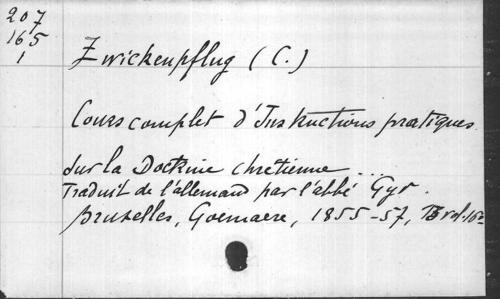 207
165
1
Zwickenpflug (C.)
Cours complet d'Instructions pratiques
sur la Doctrine chrétienne ...
Traduit de l'allemand par l'abbé Gyr.
Bruxelles, Goemaere, 1855-57, vol.